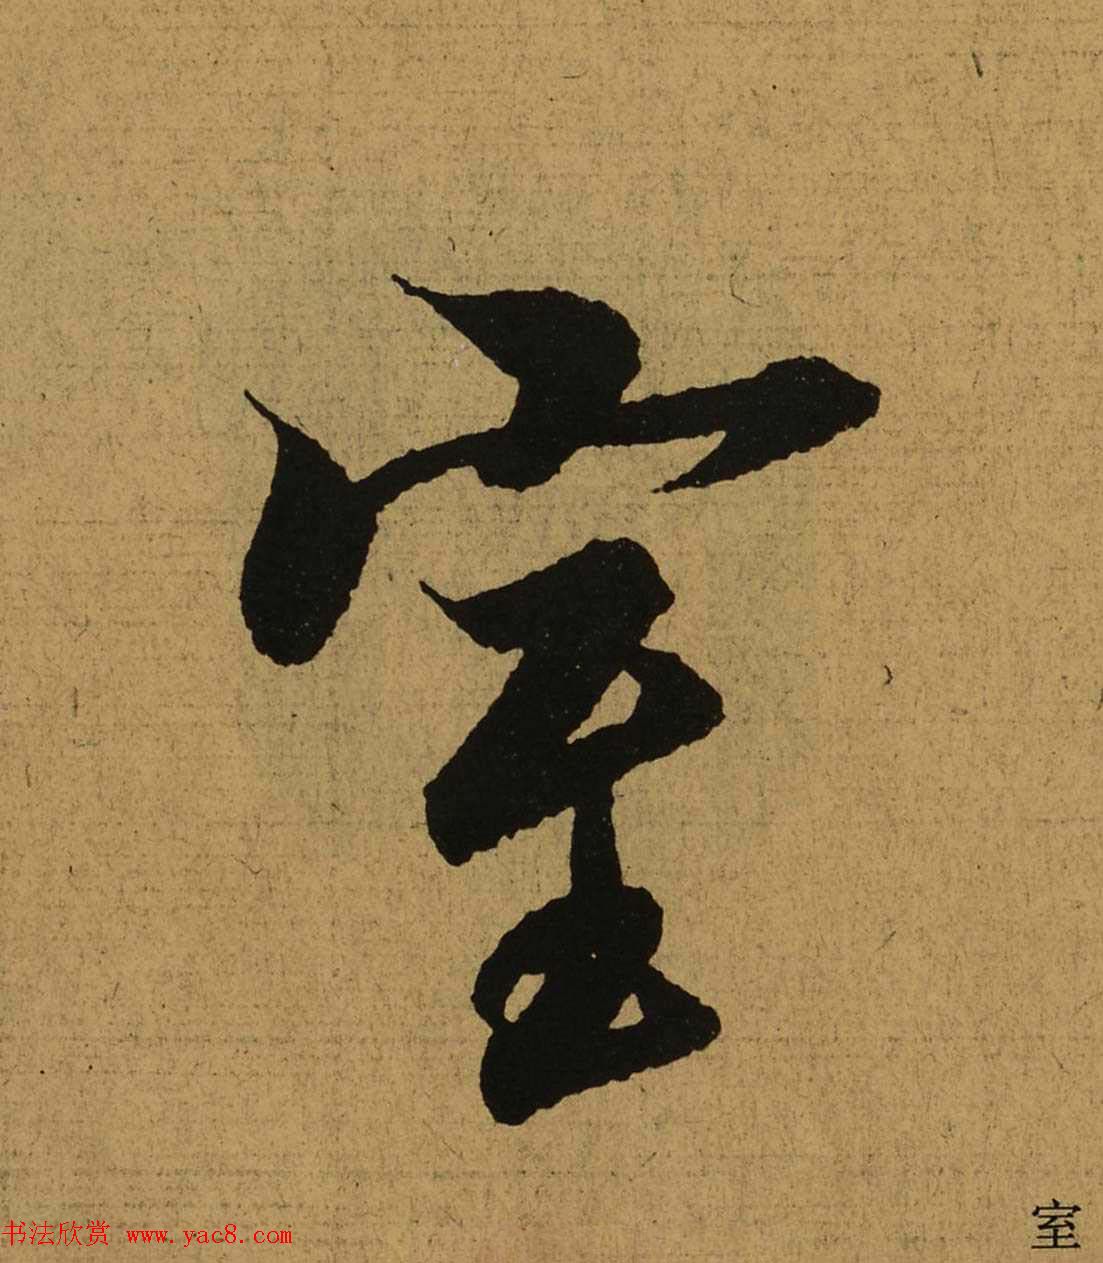 室
室
书法欣赏 www.yac8.com